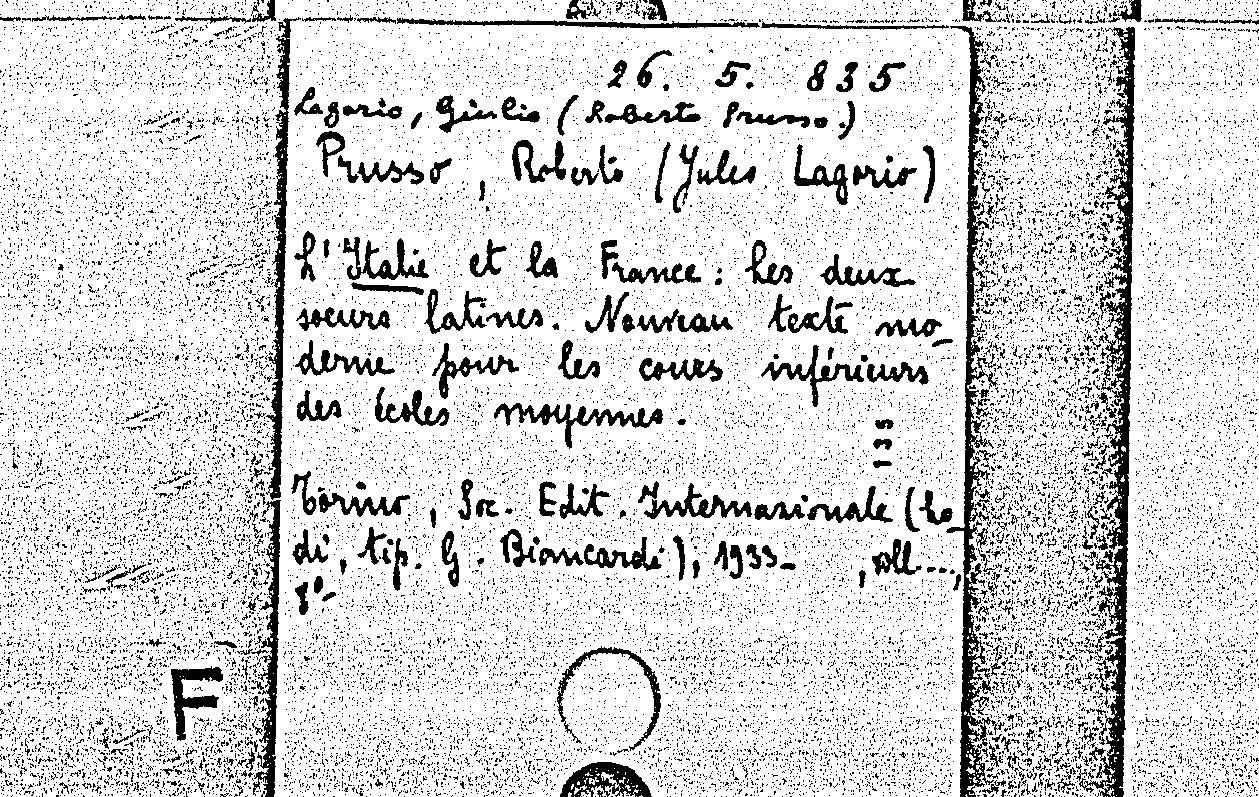 26. 5. 835
Lagorio, Giulio (Roberto Prusso.)
Prusso, Roberto (Jules Lagorio)
L'Italie et la France: Les deux
soeurs latines. Nouveau texte mo-
derne pour les cours inférieurs
des écoles moyennes.
135
Torino, Soc. Edit. Internazionale (Lo-
di, tip. G. Biancardi), 1933- , voll....,
8°-
F